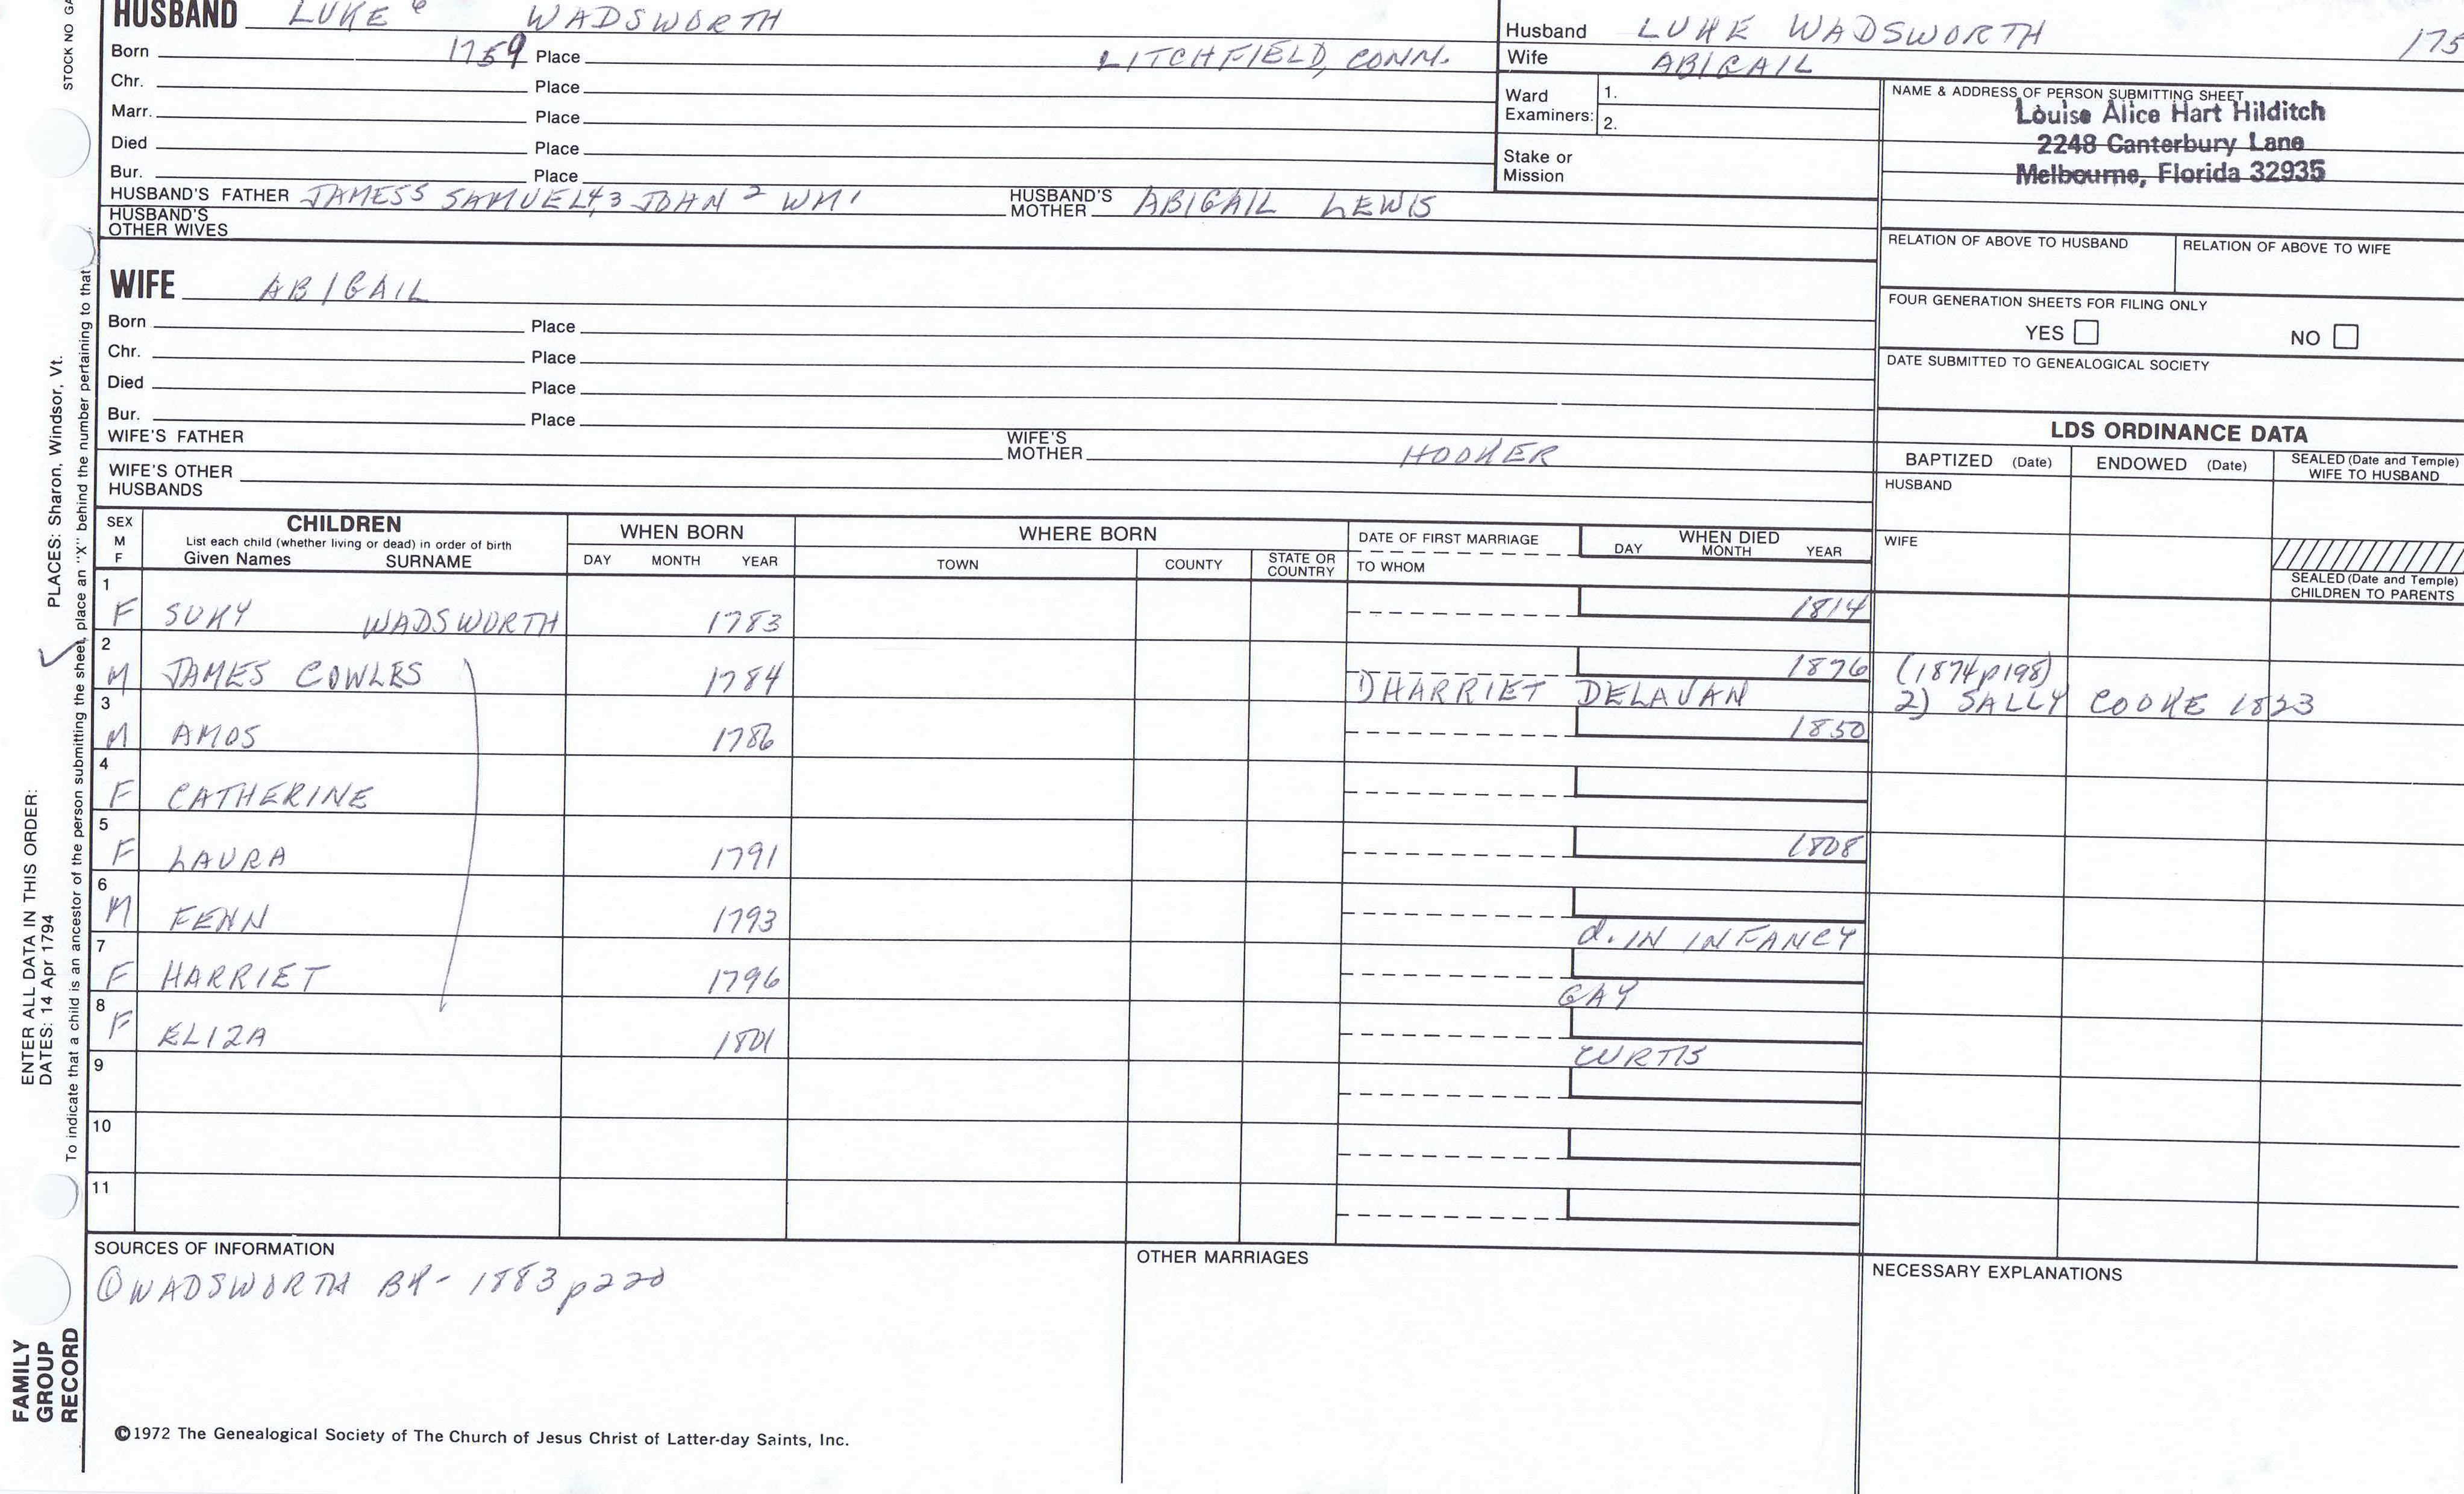 HUSBAND LUKE 6 WADSWORTH
Born 1759 Place LITCHFIELD, CONN.
Chr. Place
Marr. Place
Died Place
Bur. Place
HUSBAND'S FATHER JAMES5 SAMUEL4,3 JOHN 2 WM1 HUSBAND'S MOTHER ABIGAIL LEWIS
HUSBAND'S OTHER WIVES
Husband LUKE WADSWORTH 175
Wife ABIGAIL
Ward Examiners: 1.
2.
Stake or Mission
NAME & ADDRESS OF PERSON SUBMITTING SHEET
Louise Alice Hart Hilditch
2248 Canterbury Lane
Melbourne, Florida 32935
RELATION OF ABOVE TO HUSBAND RELATION OF ABOVE TO WIFE
FOUR GENERATION SHEETS FOR FILING ONLY
YES NO
DATE SUBMITTED TO GENEALOGICAL SOCIETY
WIFE ABIGAIL
Born Place
Chr. Place
Died Place
Bur. Place
WIFE'S FATHER WIFE'S MOTHER HOOKER
WIFE'S OTHER HUSBANDS
LDS ORDINANCE DATA
BAPTIZED (Date) ENDOWED (Date) SEALED (Date and Temple) WIFE TO HUSBAND
HUSBAND
WIFE
SEALED (Date and Temple) CHILDREN TO PARENTS
SEX M F
CHILDREN
List each child (whether living or dead) in order of birth
Given Names SURNAME
WHEN BORN
DAY MONTH YEAR
WHERE BORN
TOWN COUNTY STATE OR COUNTRY
DATE OF FIRST MARRIAGE
TO WHOM
WHEN DIED
DAY MONTH YEAR
1 F SUKY WADSWORTH 1783 1814
2 M JAMES COWLES 1784 1) HARRIET DELAVAN 1876 (1874 p198) 2) SALLY COOKE 1823
3 M AMOS 1786 1850
4 F CATHERINE
5 F LAURA 1791 1808
6 M FENN 1793 d. IN INFANCY
7 F HARRIET 1796 GAY
8 F ELIZA 1801 CURTIS
9
10
11
SOURCES OF INFORMATION
① WADSWORTH BK - 1883 p220
OTHER MARRIAGES
NECESSARY EXPLANATIONS
©1972 The Genealogical Society of The Church of Jesus Christ of Latter-day Saints, Inc.
STOCK NO GA
PLACES: Sharon, Windsor, Vt.
To indicate that a child is an ancestor of the person submitting the sheet, place an "X" behind the number pertaining to that
ENTER ALL DATA IN THIS ORDER:
DATES: 14 Apr 1794
FAMILY
GROUP
RECORD